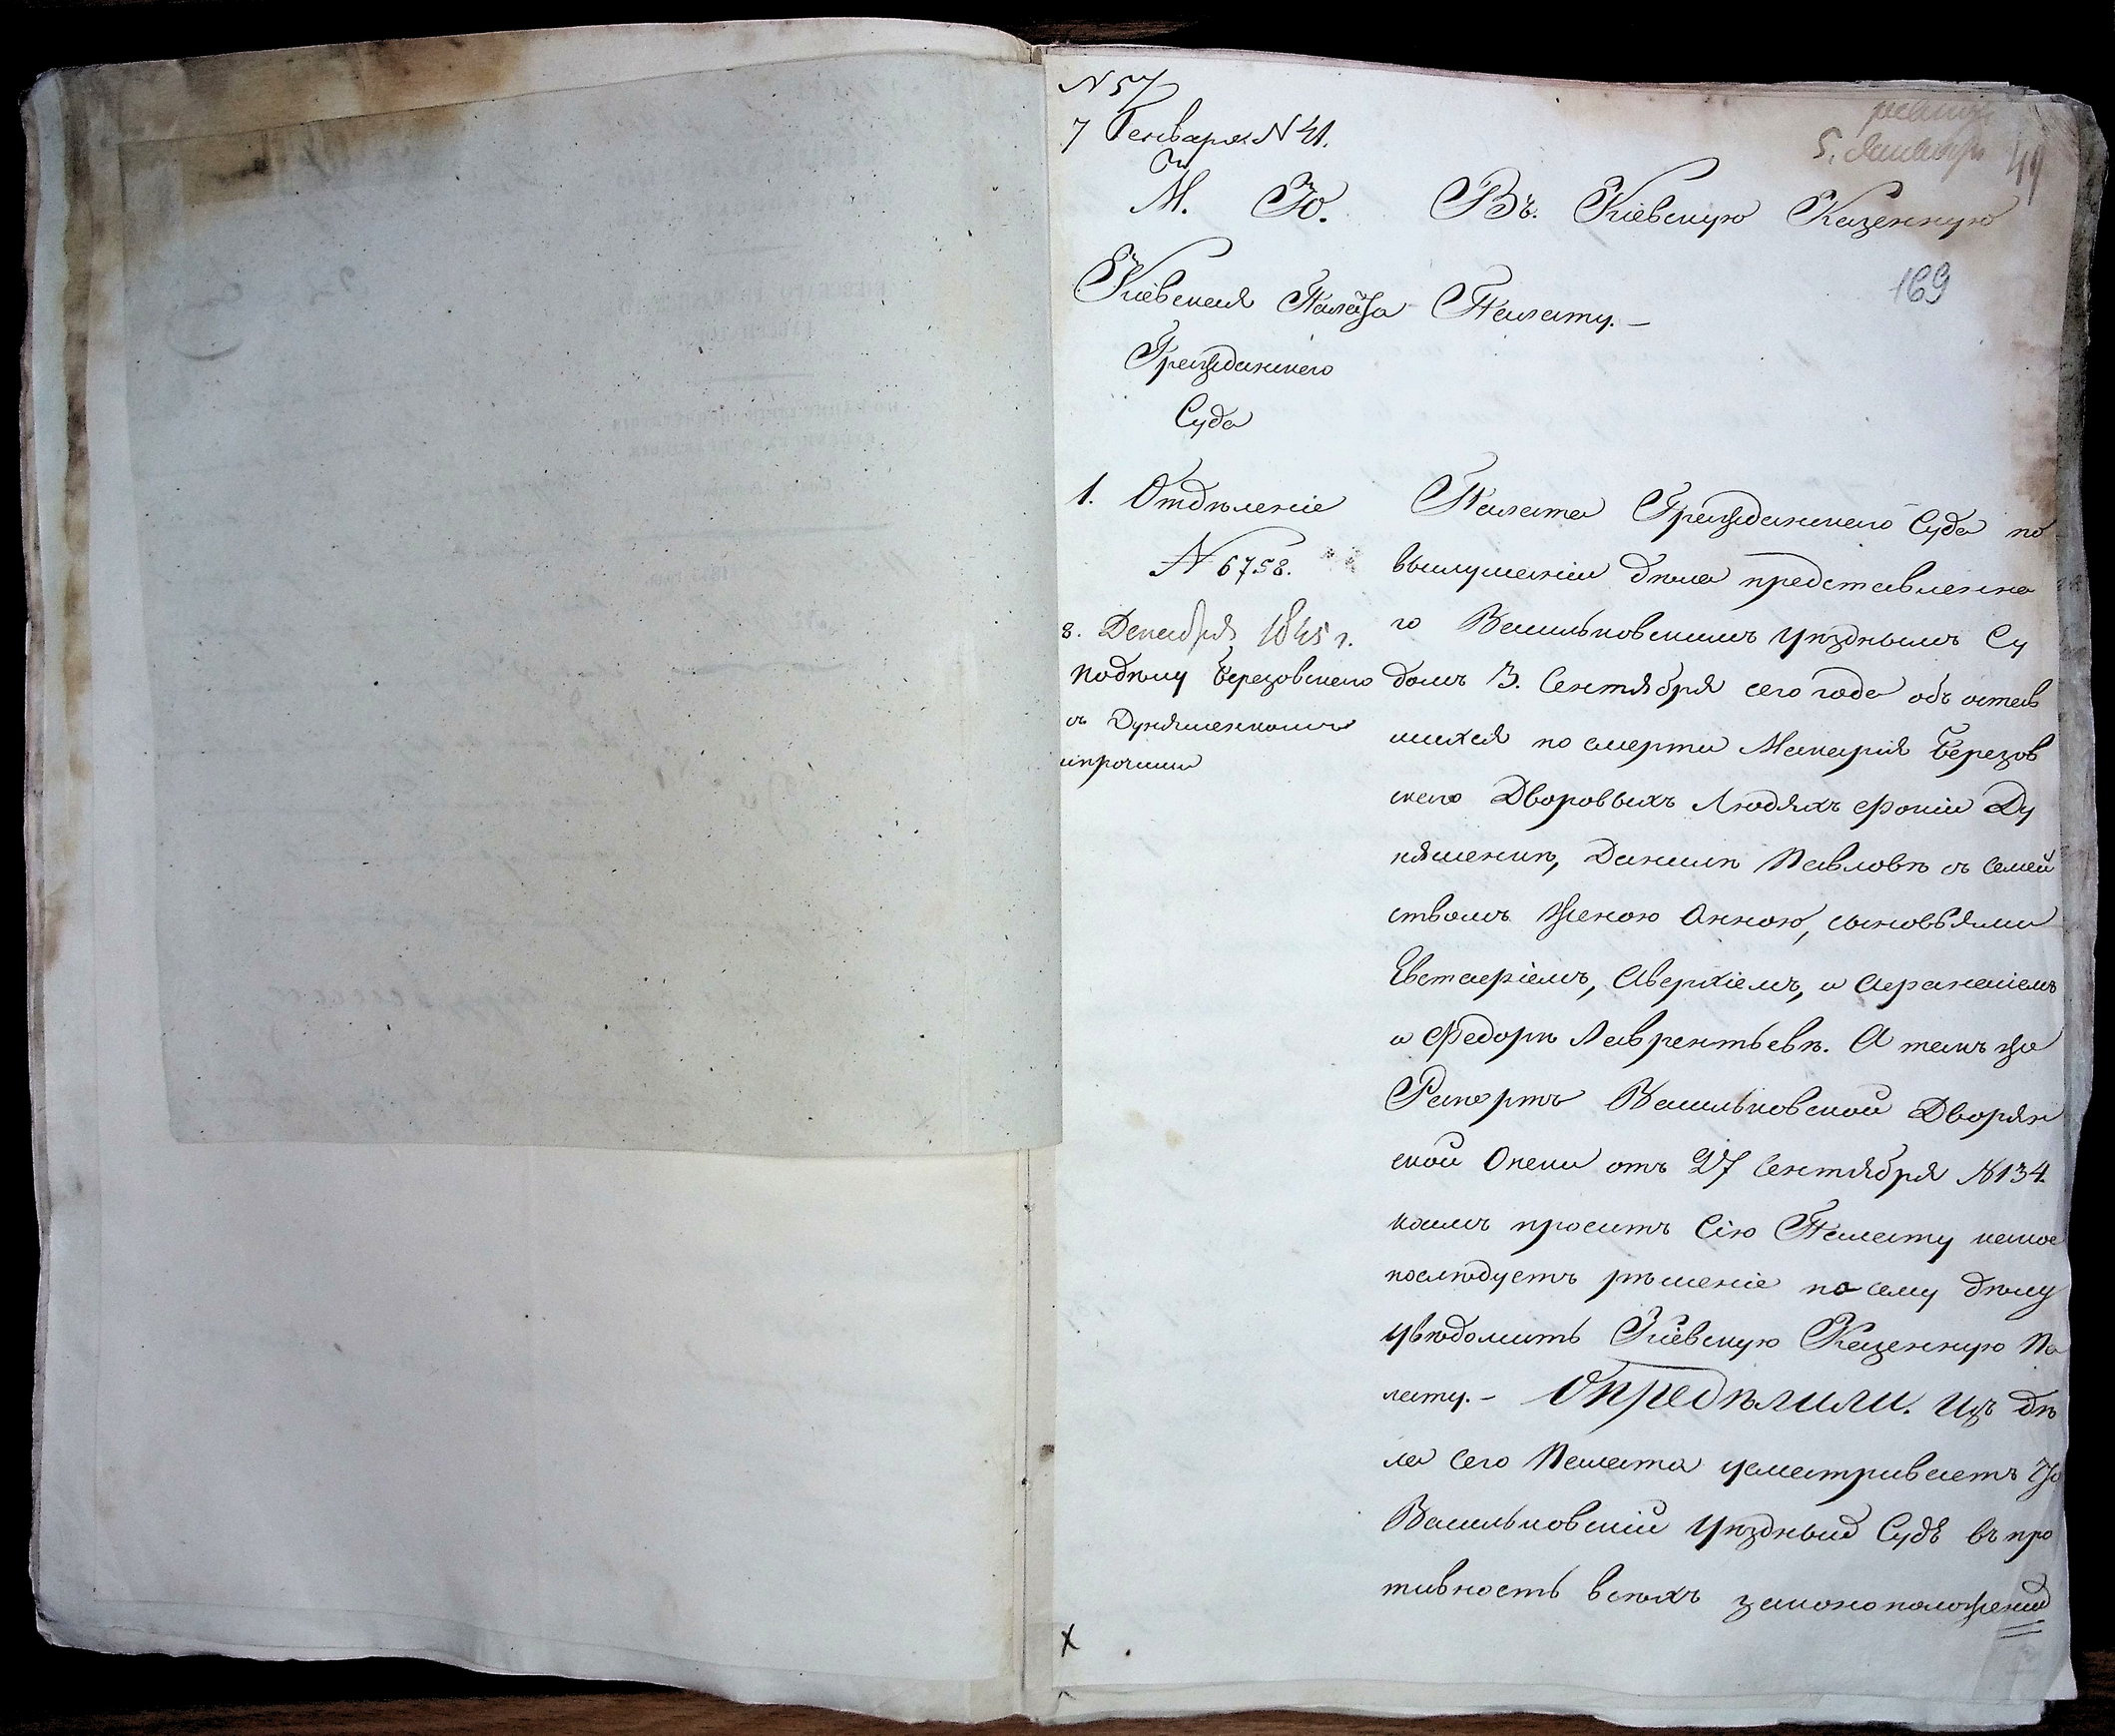 N 57
7 Генваря N 41.
5.
49
М. Ю.
Кіевская Палата
Гражданскаго
Суда
1. Отдѣленіе
N 6758.
8. Декабря 1845 г.
Подѣлу Березовскаго
съ Дуняшенкомъ
ипрочими
Въ Кіевскую Казенную
Палату. –
169
Палата Гражданскаго Суда по
выслушаніи дѣла представленна
го Васильковскимъ Уѣзднымъ Су
домъ 3. Сентября сего года объ остав
шихся по смерти Макарія Березов
скаго Дворовыхъ Людяхъ Фокіи Ду
няшенкѣ, Данилѣ Павловѣ съ Семей
ствомъ Женою Анною, сыновьями
Евстафіемъ, Аверкіемъ, и Афанасіемъ
и Федорѣ Лаврентьевѣ. А такъ же
Рапортъ Васильковской Дворян
ской Опеки отъ 27 Сентября N 134.
коимъ проситъ Сію Палату какое
послѣдуетъ рѣшеніе по сему дѣлу
увѣдомить Кіевскую Казенную Па
лату. – Опредѣлили. Изъ дѣ
ла сего Палата усматриваетъ что
Васильковскій Уѣздный Судъ въ про
тивность всѣхъ законоположеній